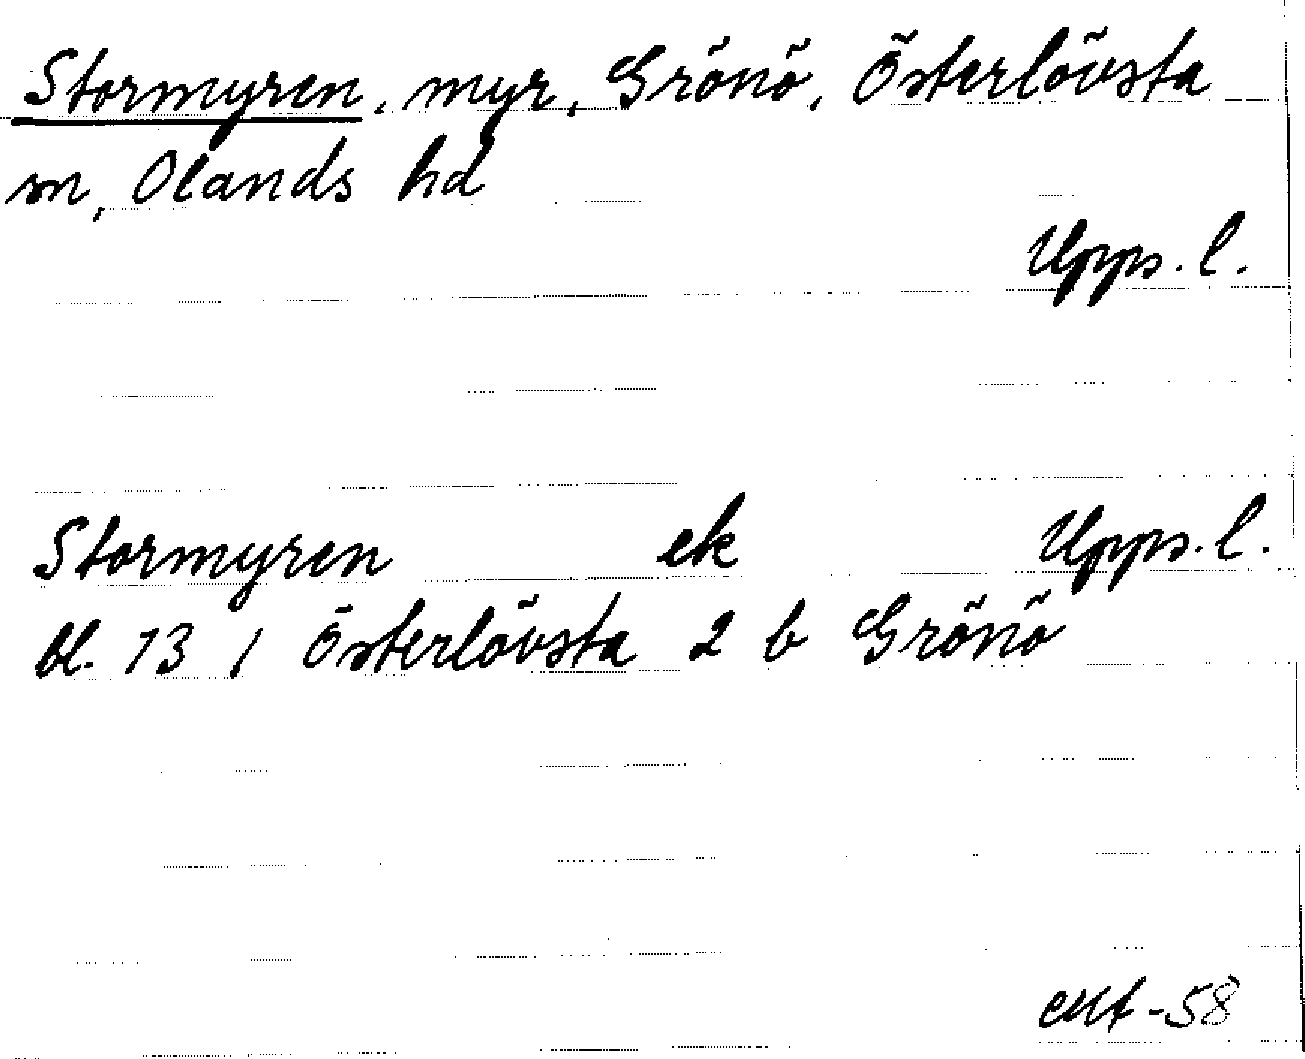 Stormyren, myr, Grönö, Österlövsta
sn, Olands hd
Upps. l.
Stormyren ek Upps. l.
bl. 13 / Österlövsta 2 b Grönö
-58